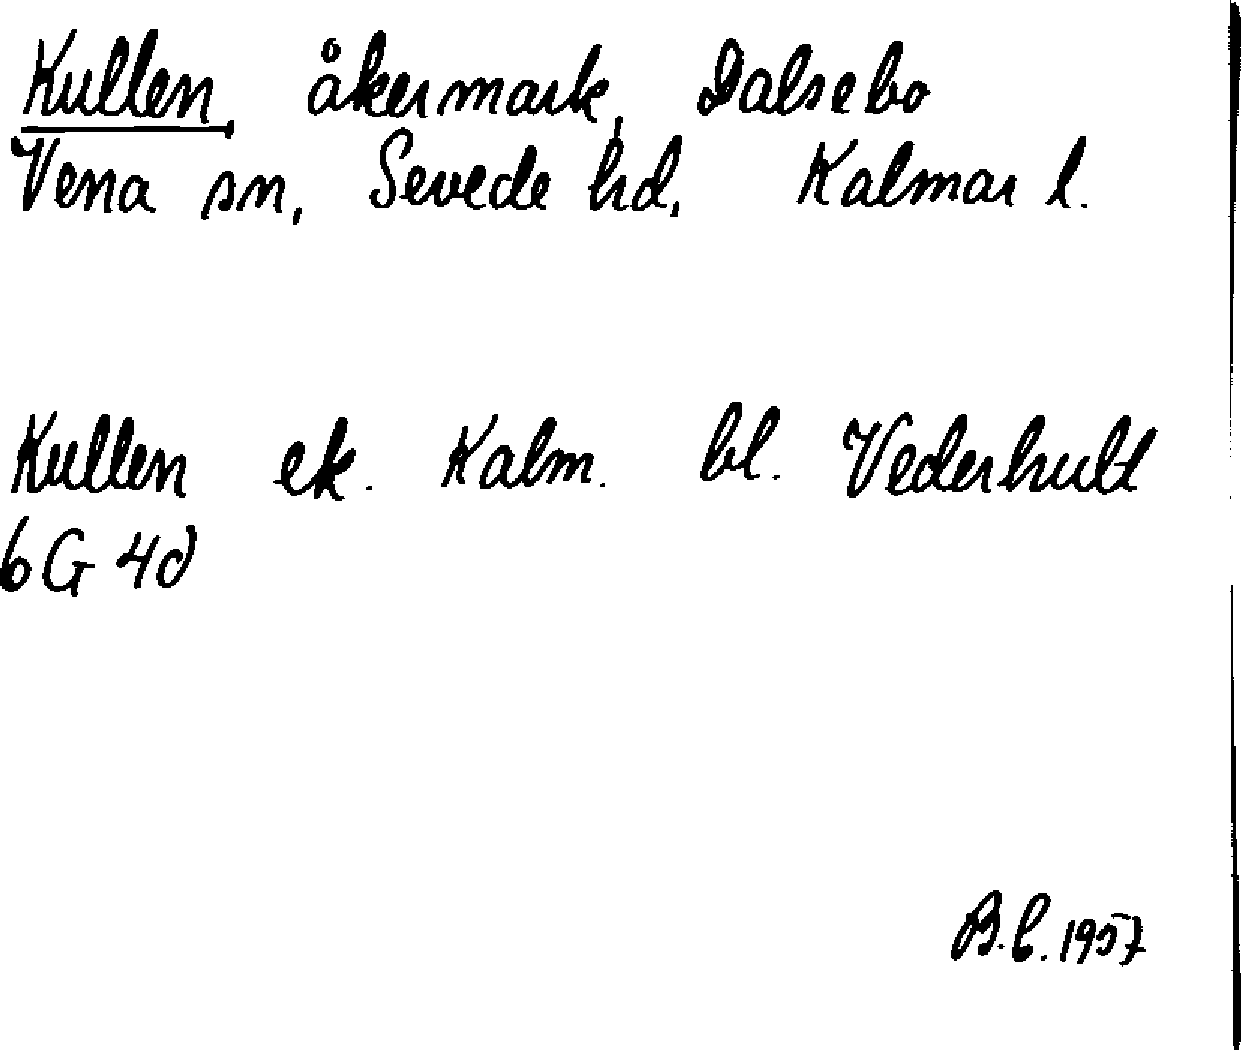 Kullen, åkermark, Dalsebo
Vena sn, Sevede hd, Kalmar l.
Kullen ek. Kalm. bl. Vederhult
6G 4d
B.C. 1957